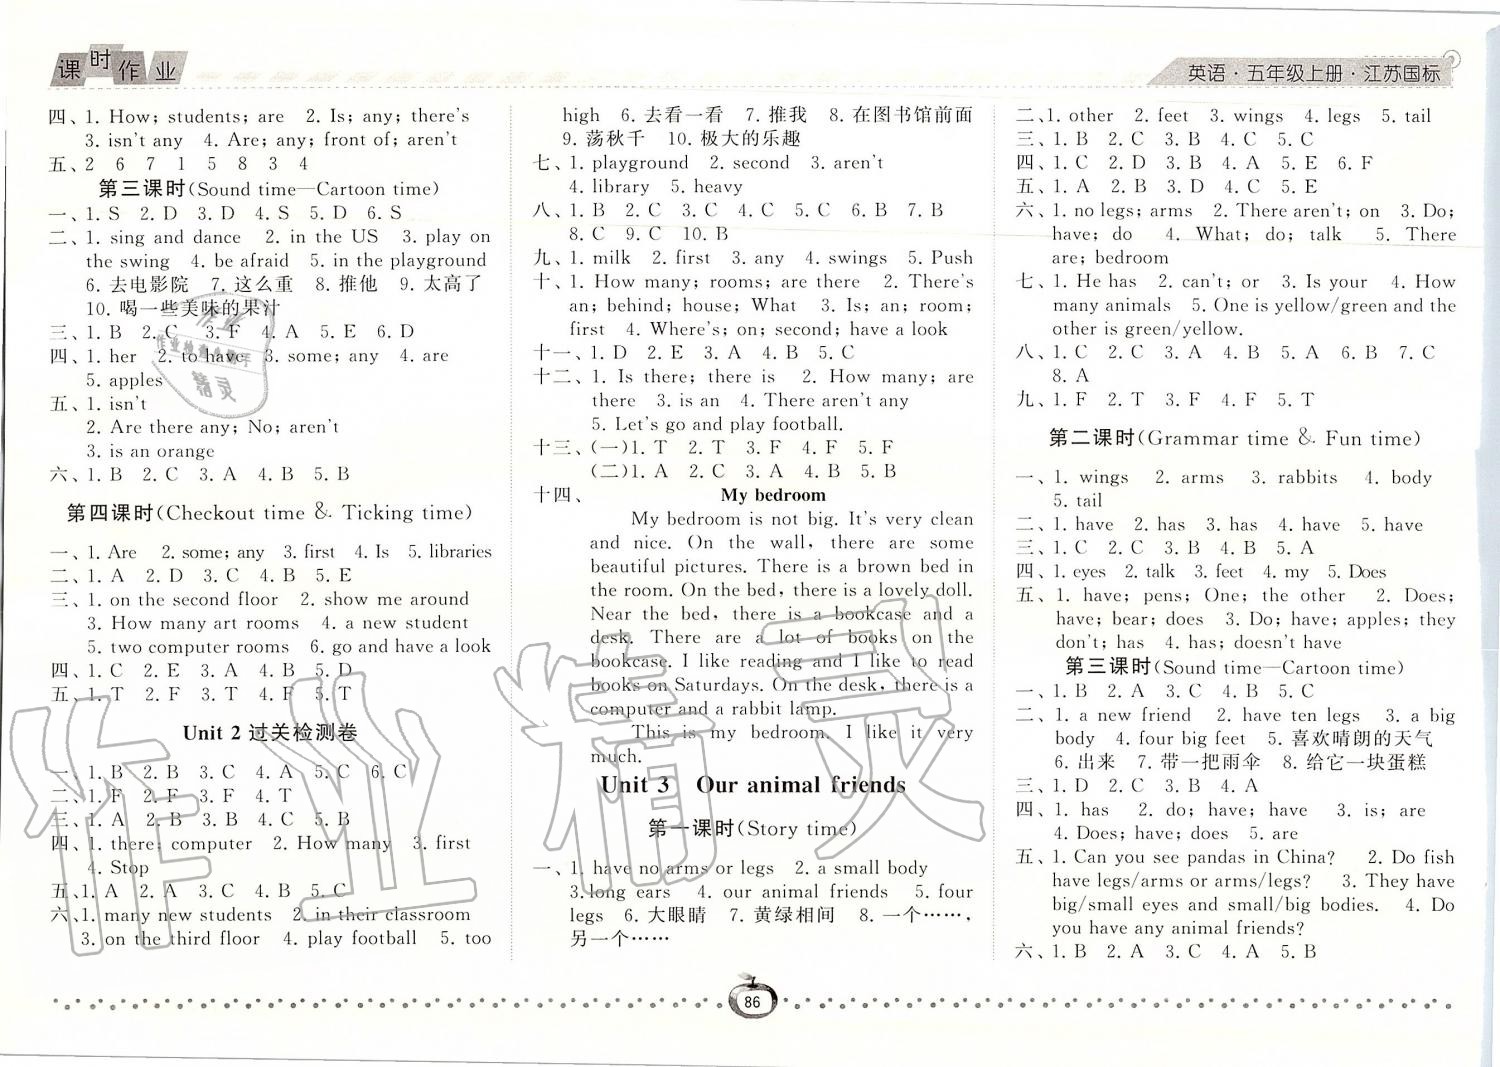 课时作业
英语·五年级上册·江苏国标
四、1. How; students; are 2. Is; any; there's
3. isn't any 4. Are; any; front of; aren't
五、2 6 7 1 5 8 3 4
第三课时(Sound time—Cartoon time)
一、1. S 2. D 3. D 4. S 5. D 6. S
二、1. sing and dance 2. in the US 3. play on
the swing 4. be afraid 5. in the playground
6. 去电影院 7. 这么重 8. 推他 9. 太高了
10. 喝一些美味的果汁
三、1. B 2. C 3. F 4. A 5. E 6. D
四、1. her 2. to have 3. some; any 4. are
5. apples
五、1. isn't
2. Are there any; No; aren't
3. is an orange
六、1. B 2. C 3. A 4. B 5. B
第四课时(Checkout time & Ticking time)
一、1. Are 2. some; any 3. first 4. Is 5. libraries
二、1. A 2. D 3. C 4. B 5. E
三、1. on the second floor 2. show me around
3. How many art rooms 4. a new student
5. two computer rooms 6. go and have a look
四、1. C 2. E 3. A 4. B 5. D
五、1. T 2. F 3. T 4. F 5. T
Unit 2 过关检测卷
一、1. B 2. B 3. C 4. A 5. C 6. C
二、1. F 2. F 3. F 4. T
三、1. A 2. B 3. B 4. B 5. A
四、1. there; computer 2. How many 3. first
4. Stop
五、1. A 2. A 3. C 4. B 5. C
六、1. many new students 2. in their classroom
3. on the third floor 4. play football 5. too
high 6. 去看一看 7. 推我 8. 在图书馆前面
9. 荡秋千 10. 极大的乐趣
七、1. playground 2. second 3. aren't
4. library 5. heavy
八、1. B 2. C 3. C 4. C 5. C 6. B 7. B
8. C 9. C 10. B
九、1. milk 2. first 3. any 4. swings 5. Push
十、1. How many; rooms; are there 2. There's
an; behind; house; What 3. Is; an; room;
first 4. Where's; on; second; have a look
十一、1. D 2. E 3. A 4. B 5. C
十二、1. Is there; there is 2. How many; are
there 3. is an 4. There aren't any
5. Let's go and play football.
十三、(一)1. T 2. T 3. F 4. F 5. F
(二)1. A 2. C 3. A 4. B 5. B
十四、 My bedroom
My bedroom is not big. It's very clean
and nice. On the wall, there are some
beautiful pictures. There is a brown bed in
the room. On the bed, there is a lovely doll.
Near the bed, there is a bookcase and a
desk. There are a lot of books on the
bookcase. I like reading and I like to read
books on Saturdays. On the desk, there is a
computer and a rabbit lamp.
This is my bedroom. I like it very
much.
Unit 3 Our animal friends
第一课时(Story time)
一、1. have no arms or legs 2. a small body
3. long ears 4. our animal friends 5. four
legs 6. 大眼睛 7. 黄绿相间 8. 一个……,
另一个……
二、1. other 2. feet 3. wings 4. legs 5. tail
三、1. B 2. C 3. B 4. C 5. C
四、1. C 2. D 3. B 4. A 5. E 6. F
五、1. A 2. B 3. D 4. C 5. E
六、1. no legs; arms 2. There aren't; on 3. Do;
have; do 4. What; do; talk 5. There
are; bedroom
七、1. He has 2. can't; or 3. Is your 4. How
many animals 5. One is yellow/green and the
other is green/yellow.
八、1. C 2. C 3. A 4. B 5. A 6. B 7. C
8. A
九、1. F 2. T 3. F 4. F 5. T
第二课时(Grammar time & Fun time)
一、1. wings 2. arms 3. rabbits 4. body
5. tail
二、1. have 2. has 3. has 4. have 5. have
三、1. C 2. C 3. B 4. B 5. A
四、1. eyes 2. talk 3. feet 4. my 5. Does
五、1. have; pens; One; the other 2. Does;
have; bear; does 3. Do; have; apples; they
don't; has 4. has; doesn't have
第三课时(Sound time—Cartoon time)
一、1. B 2. A 3. C 4. B 5. C
二、1. a new friend 2. have ten legs 3. a big
body 4. four big feet 5. 喜欢晴朗的天气
6. 出来 7. 带一把雨伞 8. 给它一块蛋糕
三、1. D 2. C 3. B 4. A
四、1. has 2. do; have; have 3. is; are
4. Does; have; does 5. are
五、1. Can you see pandas in China? 2. Do fish
have legs/arms or arms/legs? 3. They have
big/small eyes and small/big bodies. 4. Do
you have any animal friends?
六、1. B 2. A 3. C 4. A 5. B
86
作业精灵